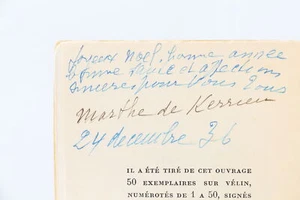 Joyeux Noël, bonne année
bonne et affections
sincères pour vous tous
Marthe de Kerrieu
24 decembre 36
IL A ÉTÉ TIRÉ DE CET OUVRAGE
50 EXEMPLAIRES SUR VÉLIN,
NUMÉROTÉS DE 1 A 50, SIGNÉS